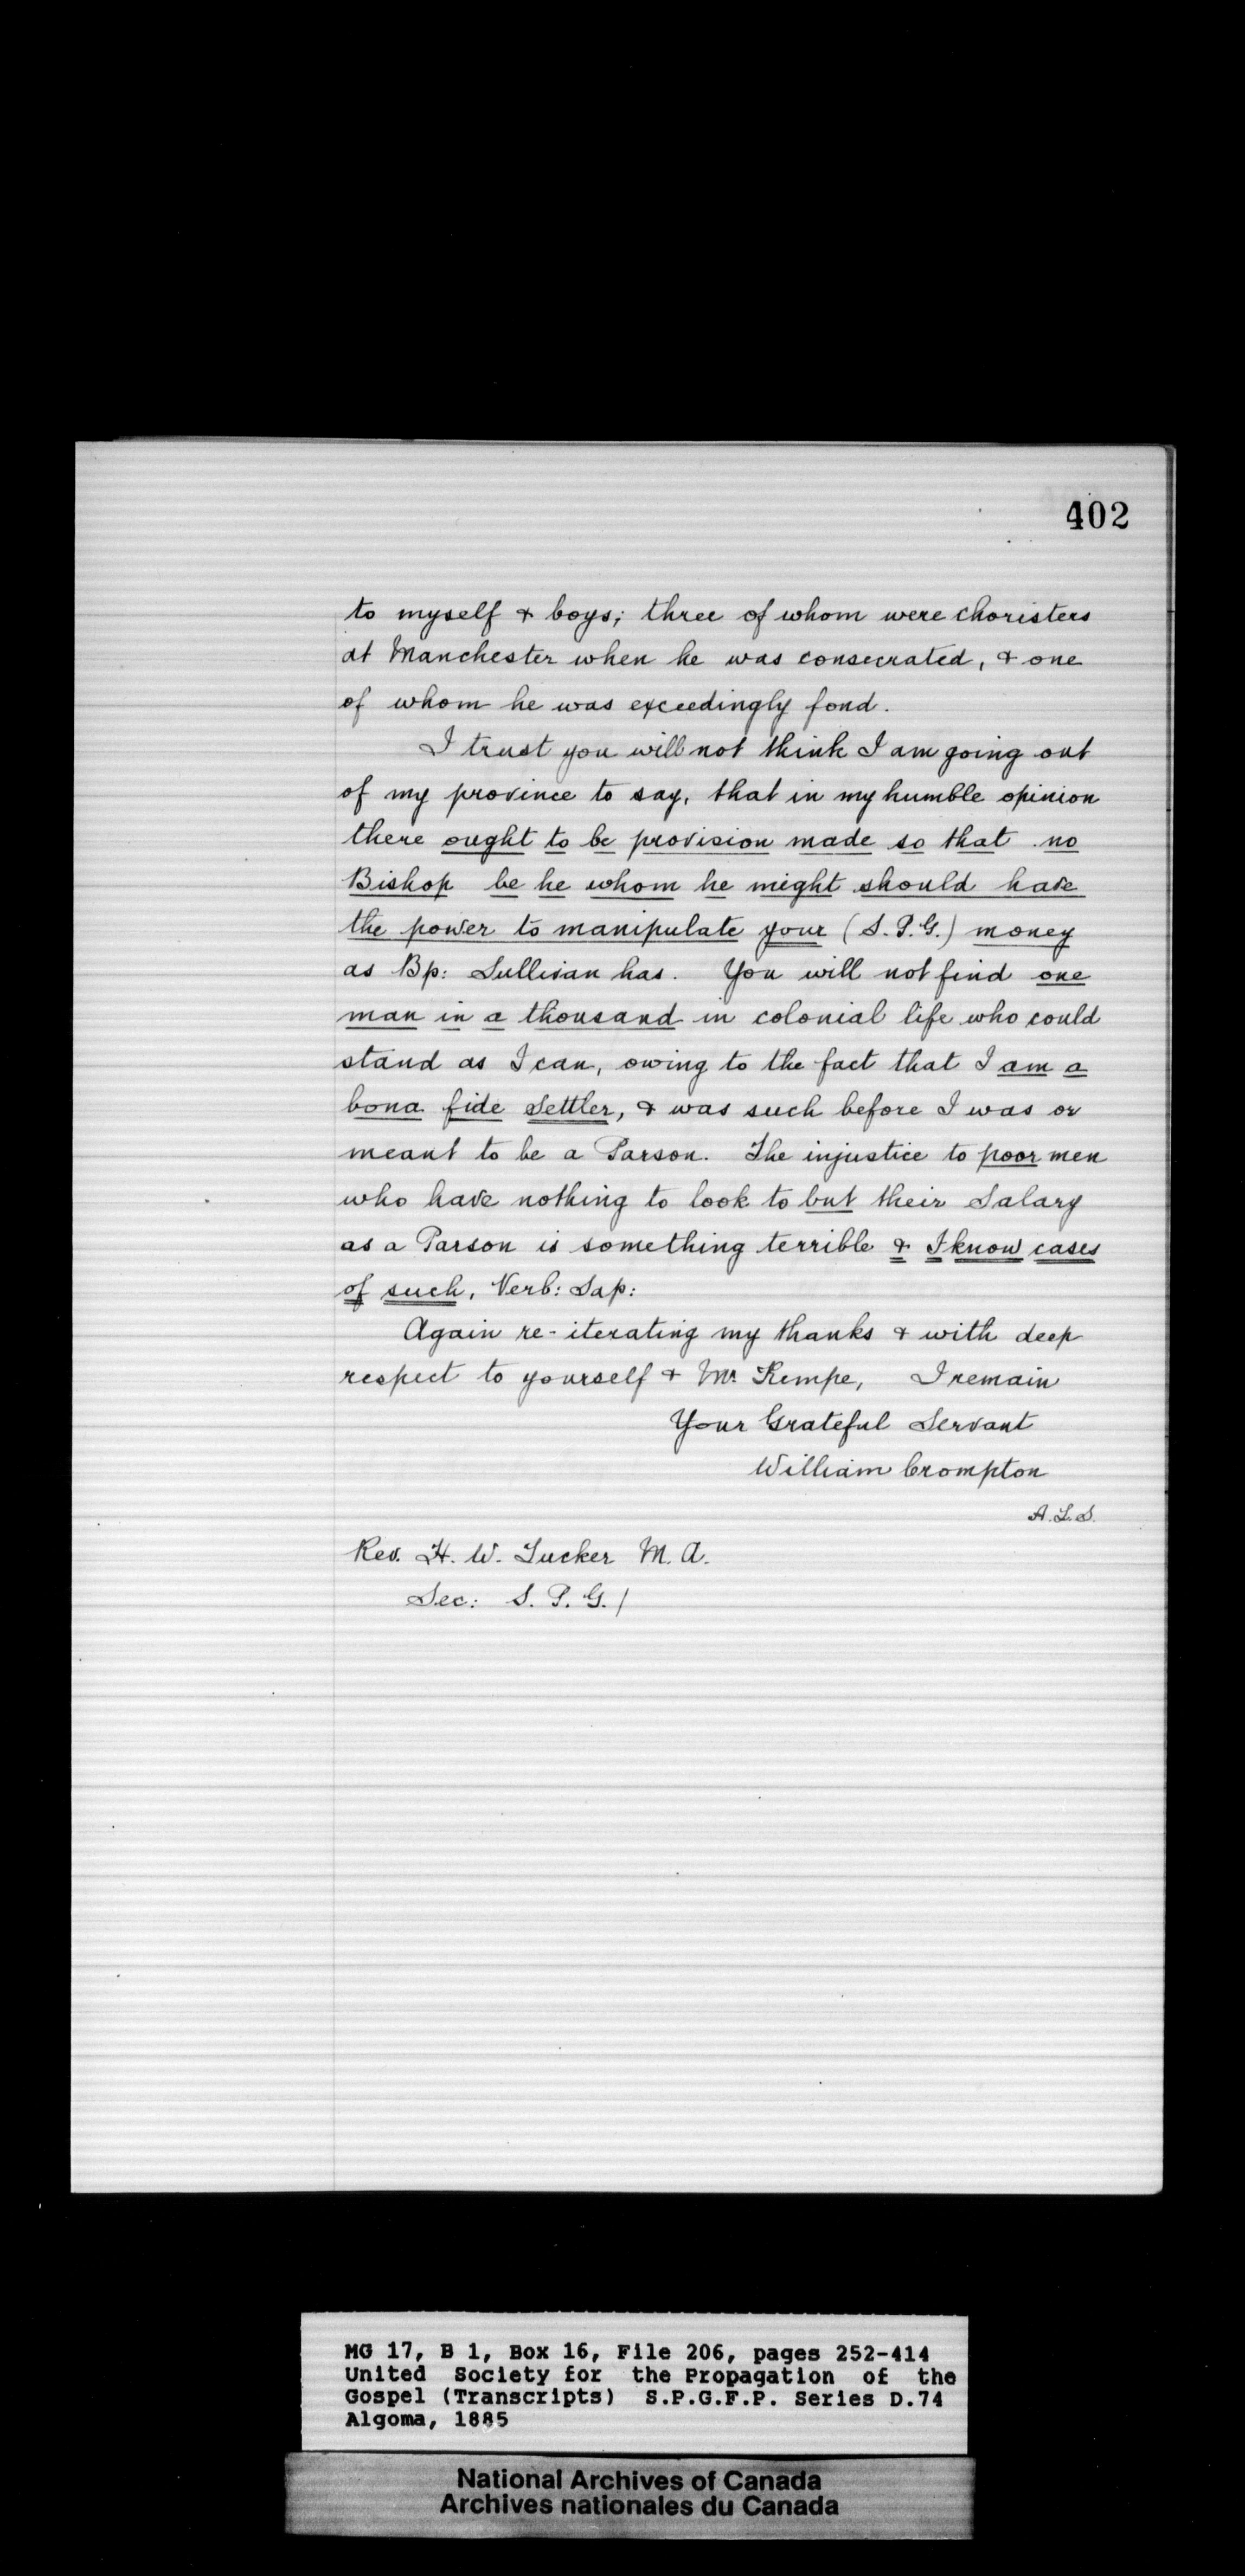 402
to myself & boys; three of whom were choristers
at Manchester when he was consecrated, & one
of whom he was exceedingly fond.
I trust you will not think I am going out
of my province to say, that in my humble opinion
there ought to be provision made so that no
Bishop be he whom he might should have
the power to manipulate your (S.P.G.) money
as Bp: Sullivan has. You will not find one
man in a thousand in colonial life who could
stand as I can, owing to the fact that I am a
bona fide Settler, & was such before I was or
meant to be a Parson. The injustice to poor men
who have nothing to look to but their Salary
as a Parson is something terrible & I know cases
of such, Verb: Sap:
Again re-iterating my thanks & with deep
respect to yourself & Mr. Kempe, I remain
Your Grateful Servant
William Crompton
A.L.S.
Rev. H. W. Tucker M. A.
Sec: S. P. G./
MG 17, B 1, Box 16, File 206, pages 252-414
United Society for the Propagation of the
Gospel (Transcripts) S.P.G.F.P. Series D.74
Algoma, 1885
National Archives of Canada
Archives nationales du Canada